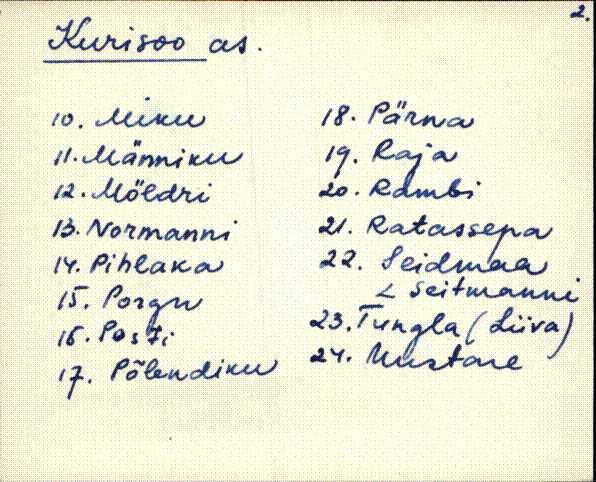 2.
Kurisoo as.
10. Miku
11. Männiku
12. Möldri
13. Normanni
14. Pihlaka
15. Porgu
16. Posti
17. Põlendiku
18. Pärna
19. Raja
20. Rambi
21. Ratassepa
22. Seidmaa
< Seitmanni
23. Tungla (Liiva)
24. Uustare